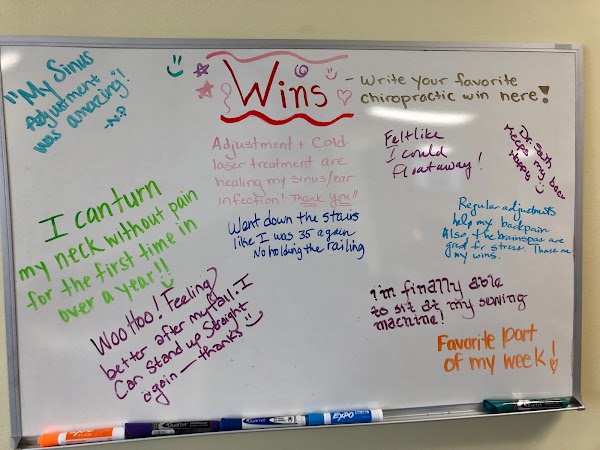 Wins
- Write your favorite
chiropractic win here!
"My Sinus
Adjustment
was amazing!"
-N.P
Adjustment + Cold-
laser treatment are
healing my sinus/ear
infection! Thank you!!
Felt like
I could
float away!
Dr. Seth
keeps my back
happy
I can turn
my neck without pain
for the first time in
over a year!!
Want down the stairs
like I was 35 again
No holding the railing
Regular adjustments
help my backpain
Also, the brainspas are
great for stress. Those are
my wins.
Woo Hoo! Feeling
better after my fall. I
Can stand up straight
again — thanks
I'm finally able
to sit at my sewing
machine!
Favorite part
of my week!
EXPO